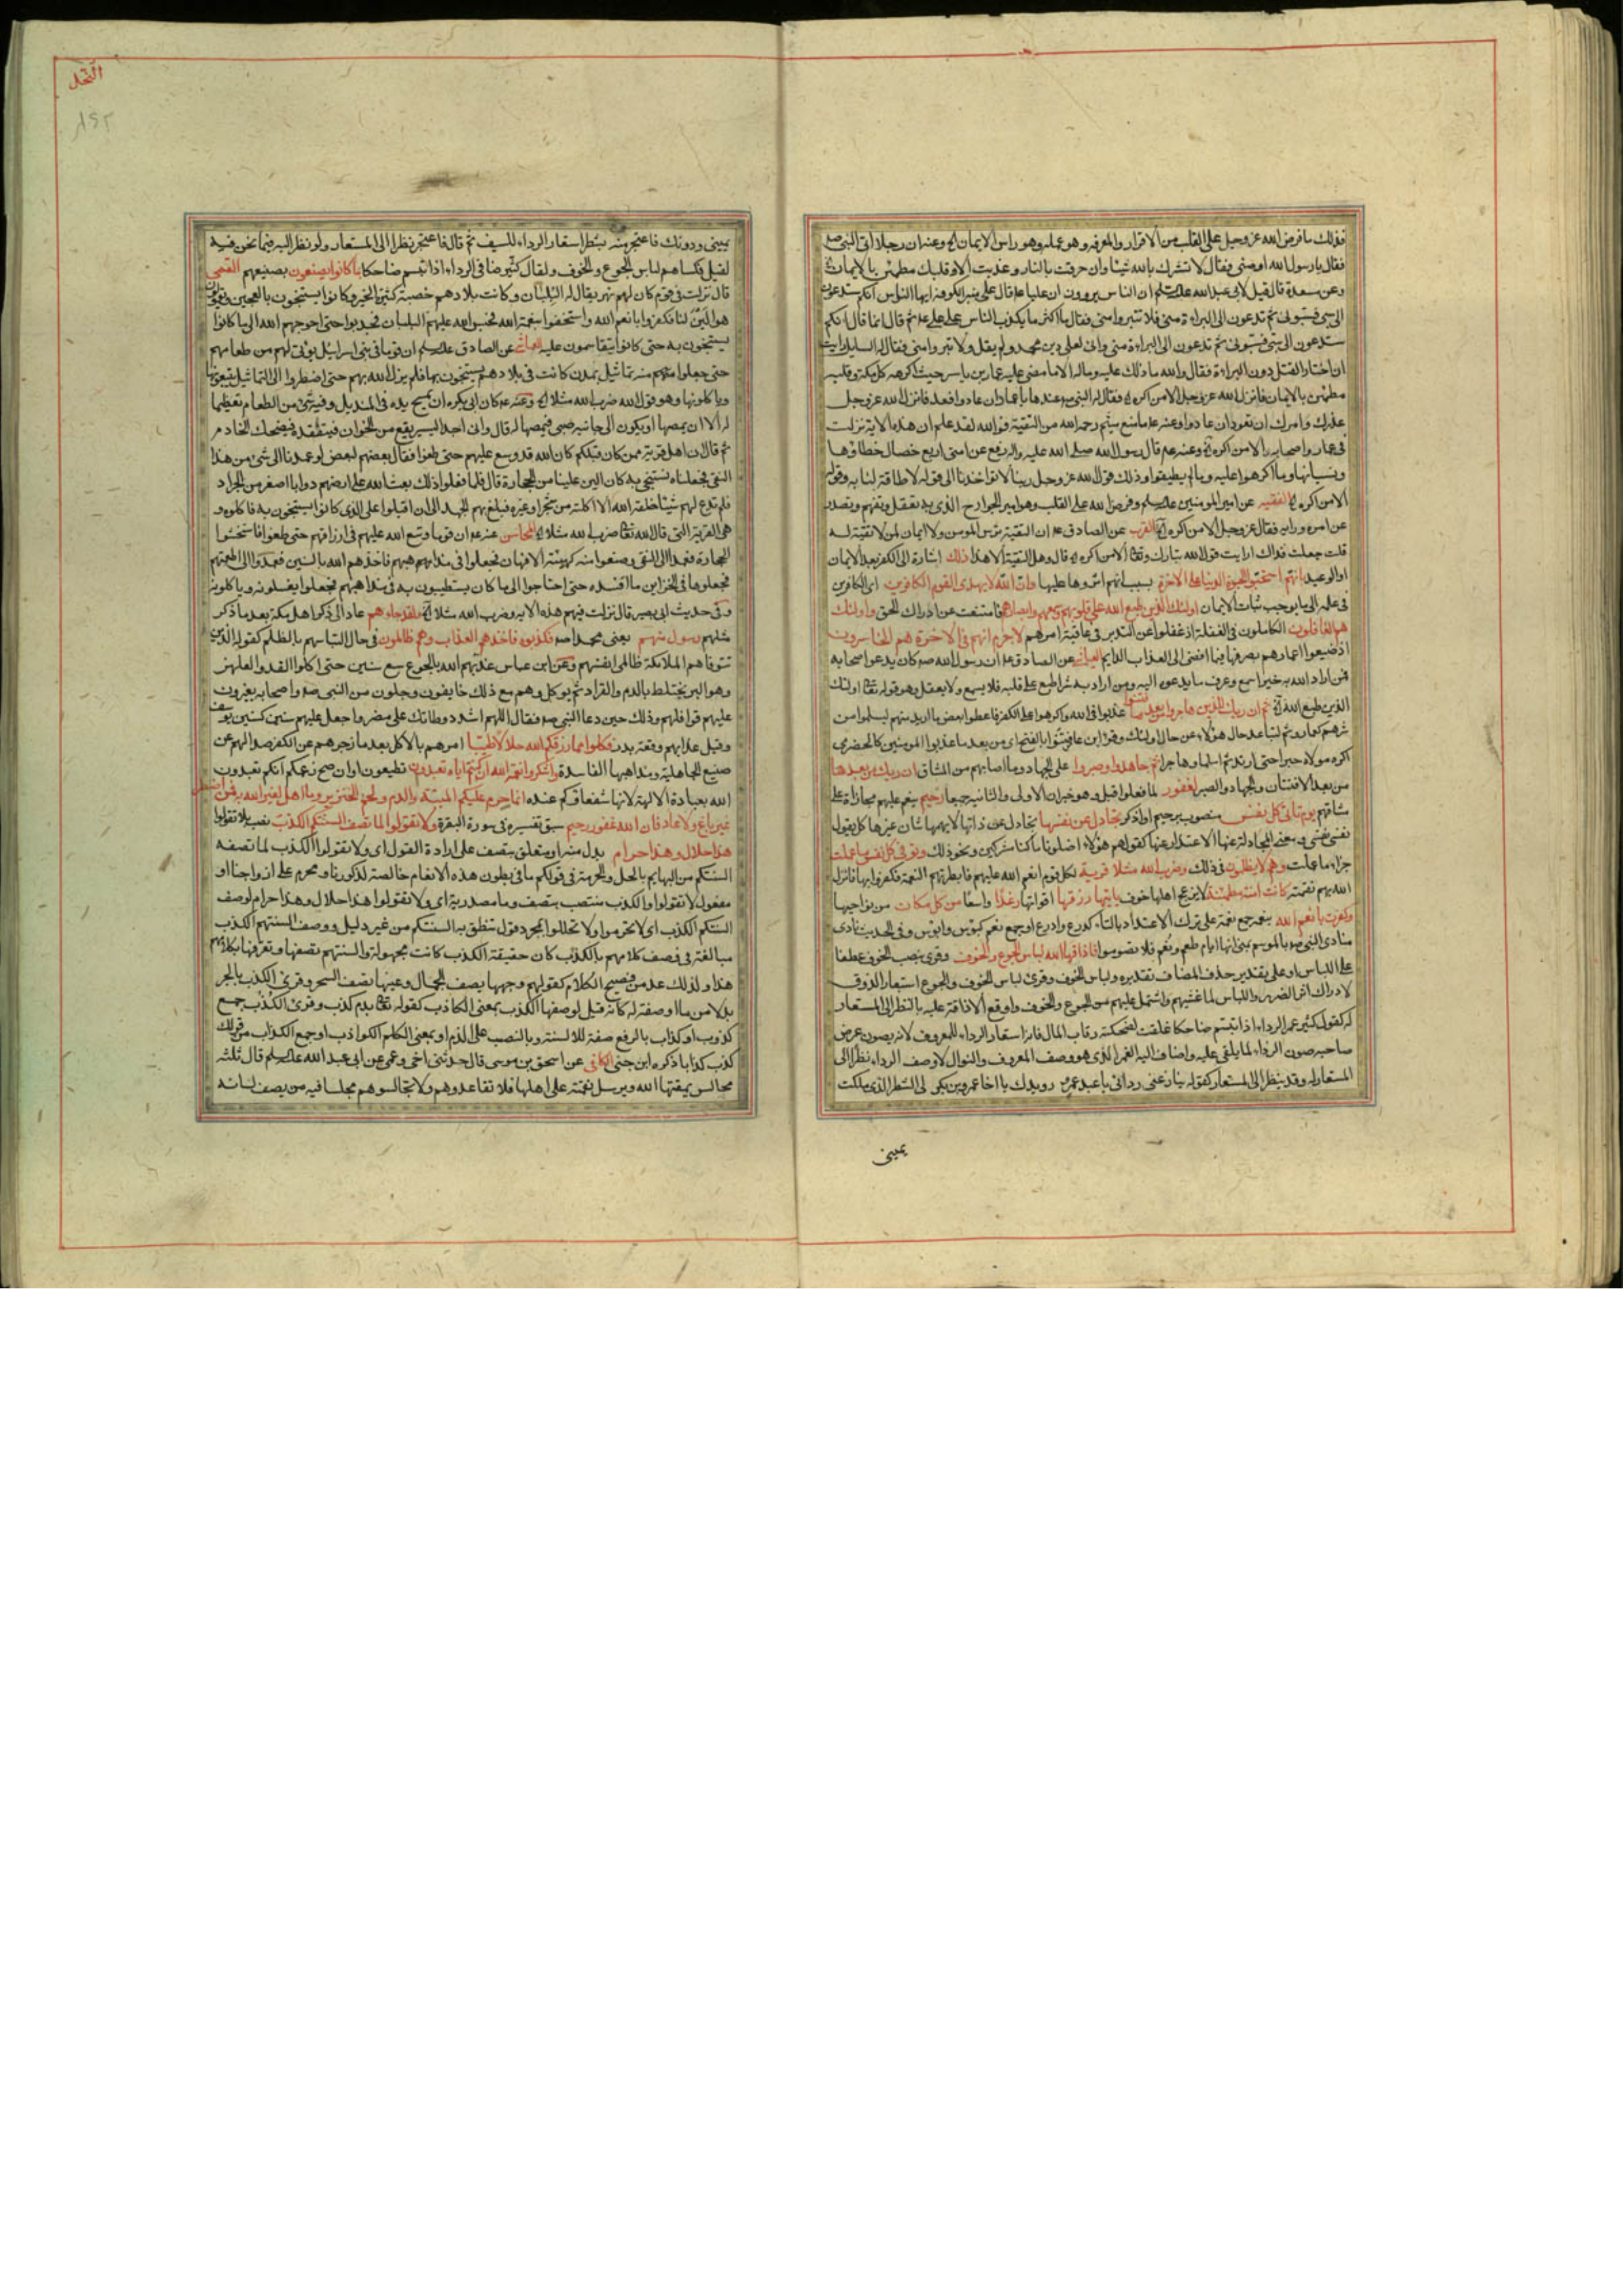 فذلك ما فرض الله عز وجل على القلب من الاقرار والمعرفه وهو عمله وهو راس الايمان وعنه ان رجلا اتى النبى صه
فقال يا رسول الله اوصنى فقال لا تشرك بالله شيئا وان حرقت بالنار وعذبت الا وقلبك مطمئن بالايمان
وعن مسعدة قال قيل لابى عبد الله ان الناس يروون ان عليا قال على منبر الكوفه ايها الناس انكم ستدعون
الى سبى فسبونى ثم تدعون الى البراءة منى فلا تتبروا منى فقال ما اكثر ما يكذب الناس على على ثم قال انما قال انكم
ستدعون الى سبى فسبونى ثم تدعون الى البراءة منى وانى لعلى دين محمد ولم يقل ولا تبروا منى فقال له السايل ارايت
ان اختار القتل دون البراءة فقال والله ما ذلك عليه وماله الا ما مضى عليه عمار بن ياسر حيث اكرهه اهل مكة وقلبه
مطمئن بالايمان فانزل الله عز وجل الا من اكره فقال له النبى عندها يا عمار ان عادوا فعد فانزل الله عز وجل
عذرك وامرك ان تعود ان عادوا وعنه ما منع ميثم رحمه الله من التقية فوالله لقد علم ان هذه الاية نزلت
فى عمار واصحابه الا من اكره وعنه قال رسول الله صلى الله عليه واله رفع عن امتى اربع خصال خطاؤها
ونسيانها وما اكرهوا عليه وما لم يطيقوا وذلك قول الله عز وجل ربنا لا تؤاخذنا الى قوله لا طاقة لنا به وقوله
الا من اكره الفقيه عن امير المومنين وفرض الله على القلب وهو امير الجوارح الذى به تعقل وتفهم وتصدر
عن امره ورايه فقال عز وجل الا من اكره القرب عن الصادق ان التقية ترس المومن ولا ايمان لمن لا تقية له
قلت جعلت فداك ارايت قول الله تبارك وتعا الا من اكره قال وهل التقية الا هذا ذلك اشارة الى الكفر بعد الايمان
او الوعيد بانهم استحبوا الحيوة الدنيا على الاخرة بسبب انهم اثروها عليها وان الله لا يهدى القوم الكافرين اى الكافرين
فى علمه الى ما يوجب ثبات الايمان اولئك الذين طبع الله على قلوبهم وسمعهم وابصارهم فامتنعت عن ادراك الحق واولئك
هم الغافلون الكاملون فى الغفلة اذ غفلوا عن التدبر فى عاقبة امرهم لا جرم انهم فى الاخرة هم الخاسرون
اذ ضيعوا اعمارهم بصرفها فيما افضى الى العذاب الدايم العياشى عن الصادق ان رسول الله صه كان يدعو اصحابه
فمن اراد الله به خيرا سمع وعرف ما يدعوه اليه ومن اراد به شرا طبع على قلبه فلا يسمع ولا يعقل وهو قوله تعا اولئك
الذين طبع الله ثم ان ربك للذين هاجروا من بعد ما فتنوا عذبوا فى الله واكرهوا على الكفر فاعطوا بعض ما اريد منهم ليسلموا من
شرهم كعمار وثم لتباعد حال هؤلاء عن حال اولئك وقرا ابن عامر فتنوا بالفتح اى من بعد ما عذبوا المومنين كالحضرمى
اكره مولاه جبرا حتى ارتد ثم اسلما وهاجرا ثم جاهدوا وصبروا على الجهاد وما اصابهم من المشاق ان ربك من بعدها
من بعد الافتتان والجهاد والصبر لغفور لما فعلوا قبل وهو خبر ان الاولى والثانيه جميعا رحيم ينعم عليهم مجازاة على
مشاقهم يوم تاتى كل نفس منصوب برحيم او اذكر تجادل عن نفسها تجادل عن ذاتها لا يهمها شان غيرها كل يقول
نفسى نفسى ومعنى المجادلة عنها الاعتذار عنها كقولهم هؤلاء اضلونا ما كنا مشركين ونحو ذلك وتوفى كل نفس ما عملت
جزاء ما عملت وهم لا يظلمون فى ذلك وضرب الله مثلا قرية لكل قوم انعم الله عليهم فابطرتهم النعمة فكفروا بها فانزل
الله بهم نقمته كانت امنة مطمئنة لا يزعج اهلها خوف ياتيها رزقها اقواتها رغدا واسعا من كل مكان من نواحيها
وكفرت بانعم الله بنعمه جمع نعمة على ترك الاعتداد بالتاء كدرع وادرع او جمع نعم كبؤس وابؤس وفى الحديث نادى
منادى النبى بالموسم بمنى انها ايام طعم ونعم فلا تصوموا فاذاقها الله لباس الجوع والخوف وقرئ بنصب الخوف عطفا
على اللباس او على تقدير حذف المضاف تقديره ولباس الخوف وقرئ لباس الخوف والجوع استعار الذوق
لادراك اثر الضرر واللباس لما غشيهم واشتمل عليهم من الجوع والخوف واوقع الاذاقة عليه بالنظر الى المستعار
له كقول كثير غمر الرداء اذا تبسم ضاحكا غلقت لضحكته رقاب المال فانه استعار الرداء للمعروف لانه يصون عرض
صاحبه صون الرداء لما يلقى عليه واضاف اليه الغمر الذى هو وصف المعروف والنوال لا وصف الرداء نظرا الى
المستعار له وقد ينظر الى المستعار كقوله ينازعنى ردائى عبد عمرو رويدك يا اخا عمرو بن بكر لى الشطر الذى ملكت
يمينى
النحل
١٩٢
يمينى ودونك فاعتجر منه بشطر استعار الرداء للسيف ثم قال فاعتجر نظرا الى المستعار ولو نظر اليه فيما نحن فيه
لقيل فكساهم لباس الجوع والخوف ولقال كثير ضافى الرداء اذا تبسم ضاحكا بما كانوا يصنعون بصنيعهم القمى
قال نزلت فى قوم كان لهم نهر يقال له البلبان وكانت بلادهم خصبة كثيرة الخير وكانوا يستنجون بالعجين ويقولون
هو الين لنا فكفروا بانعم الله واستخفوا بنعمة الله فحبس الله عليهم البلبان فجدبوا حتى احوجهم الله الى ما كانوا
يستنجون به حتى كانوا يتقاسمون عليه العياشى عن الصادق ان قوما فى بنى اسرائيل يؤتى لهم من طعامهم
حتى جعلوا منه تماثيل بمدن كانت فى بلادهم يستنجون بها فلم يزل الله بهم حتى اضطروا الى التماثيل يتبعونها
وياكلونها وهو قول الله ضرب الله مثلا وعنه كان ابى يكره ان يمسح يده فى المنديل وفيه شئ من الطعام تعظيما
له الا ان يمصها او يكون الى جانبه صبى فيمصها له قال وانى اجد اليسير يقع من الخوان فيتفقده فيضحك الخادم
ثم قال ان اهل قرية ممن كان قبلكم كان الله قد وسع عليهم حتى طغوا فقال بعضهم لبعض لو عمدنا الى شئ من هذا
النقى فجعلناه نستنجى به كان الين علينا من الحجارة قال فلما فعلوا ذلك بعث الله على ارضهم دوابا اصغر من الجراد
فلم تدع لهم شيئا خلقه الله الا اكلته من شجر او غيره فبلغ بهم الجهد الى ان اقبلوا على الذى كانوا يستنجون به فاكلوه و
هى القرية التى قال الله تعا ضرب الله مثلا المحاسن عنه ان قوما وسع الله عليهم فى ارزاقهم حتى طغوا فاستخشنوا
الحجارة فعمدا الى النقى وصنعوا منه كهيئة الافهار فجعلوا فى مذاهبهم فاخذهم الله بالسنين فعمدوا الى اطعمتهم
فجعلوها فى الخزاين ما افسده حتى احتاجوا الى ما كان يستطيبون به فى مذاهبهم فجعلوا يغسلونه وياكلونه
وفى حديث ابى بصير قال نزلت فيهم هذه الاية وضرب الله مثلا ولقد جاءهم عاد الى ذكر اهل مكة بعد ما ذكر
مثلهم رسول منهم يعنى محمدا صه فكذبوه فاخذهم العذاب وهم ظالمون فى حال التباسهم بالظلم كقوله الذين
تتوفاهم الملائكة ظالمى انفسهم وعن ابن عباس عذبهم الله بالجوع سبع سنين حتى اكلوا القد والعلهز
وهو الوبر يختلط بالدم والقراد ثم يوكل وهم مع ذلك خايفون وجلون من النبى صه واصحابه يغيرون
عليهم قوافلهم وذلك حين دعا النبى صه فقال اللهم اشدد وطاتك على مضر واجعل عليهم سنين كسنى يوسف
وقيل عذابهم وقعة بدر فكلوا مما رزقكم الله حلالا طيبا امرهم بالاكل بعد ما زجرهم عن الكفر صدا لهم عن
صنيع الجاهلية ومذاهبها الفاسدة واشكروا نعمة الله ان كنتم اياه تعبدون تطيعون او ان صح زعمكم انكم تعبدون
الله بعبادة الالهة لانها شفعاؤكم عنده انما حرم عليكم الميتة والدم ولحم الخنزير وما اهل لغير الله به فمن اضطر
غير باغ ولا عاد فان الله غفور رحيم سبق تفسيره فى سورة البقرة ولا تقولوا لما تصف السنتكم الكذب نصب بلا تقولوا
هذا حلال وهذا حرام بدل منه او متعلق بتصف على ارادة القول اى ولا تقولوا الكذب لما تصفه
السنتكم من البهايم بالحل والحرمة فى قولكم ما فى بطون هذه الانعام خالصة لذكورنا ومحرم على ازواجنا او
مفعول لا تقولوا والكذب منتصب بتصف وما مصدرية اى ولا تقولوا هذا حلال وهذا حرام لوصف
السنتكم الكذب اى لا تحرموا ولا تحللوا بمجرد قول تنطق به السنتكم من غير دليل ووصف السنتهم الكذب
مبالغة فى وصف كلامهم بالكذب كان حقيقة الكذب كانت مجهولة والسنتهم تصفها وتعرفها بكلامهم
هذا ولذلك عد من فصيح الكلام كقولهم وجهها يصف الجمال وعينها تصف السحر وقرئ الكذب بالجر
بدلا من ما او صفة له كانه قيل لوصفها الكذب بمعنى الكاذب كقوله تعا بدم كذب وقرئ الكذب جمع
كذوب او كذاب بالرفع صفة للالسنة وبالنصب على الذم او بمعنى الكلم الكواذب او جمع الكذاب من قولك
كذب كذابا ذكره ابن جنى الكافى عن اسحق بن موسى قال حدثنى اخى وعمى عن ابى عبد الله قال ثلثه
مجالس يمقتها الله ويرسل نقمته على اهلها فلا تقاعدوهم ولا تجالسوهم مجلسا فيه من يصف لسانه